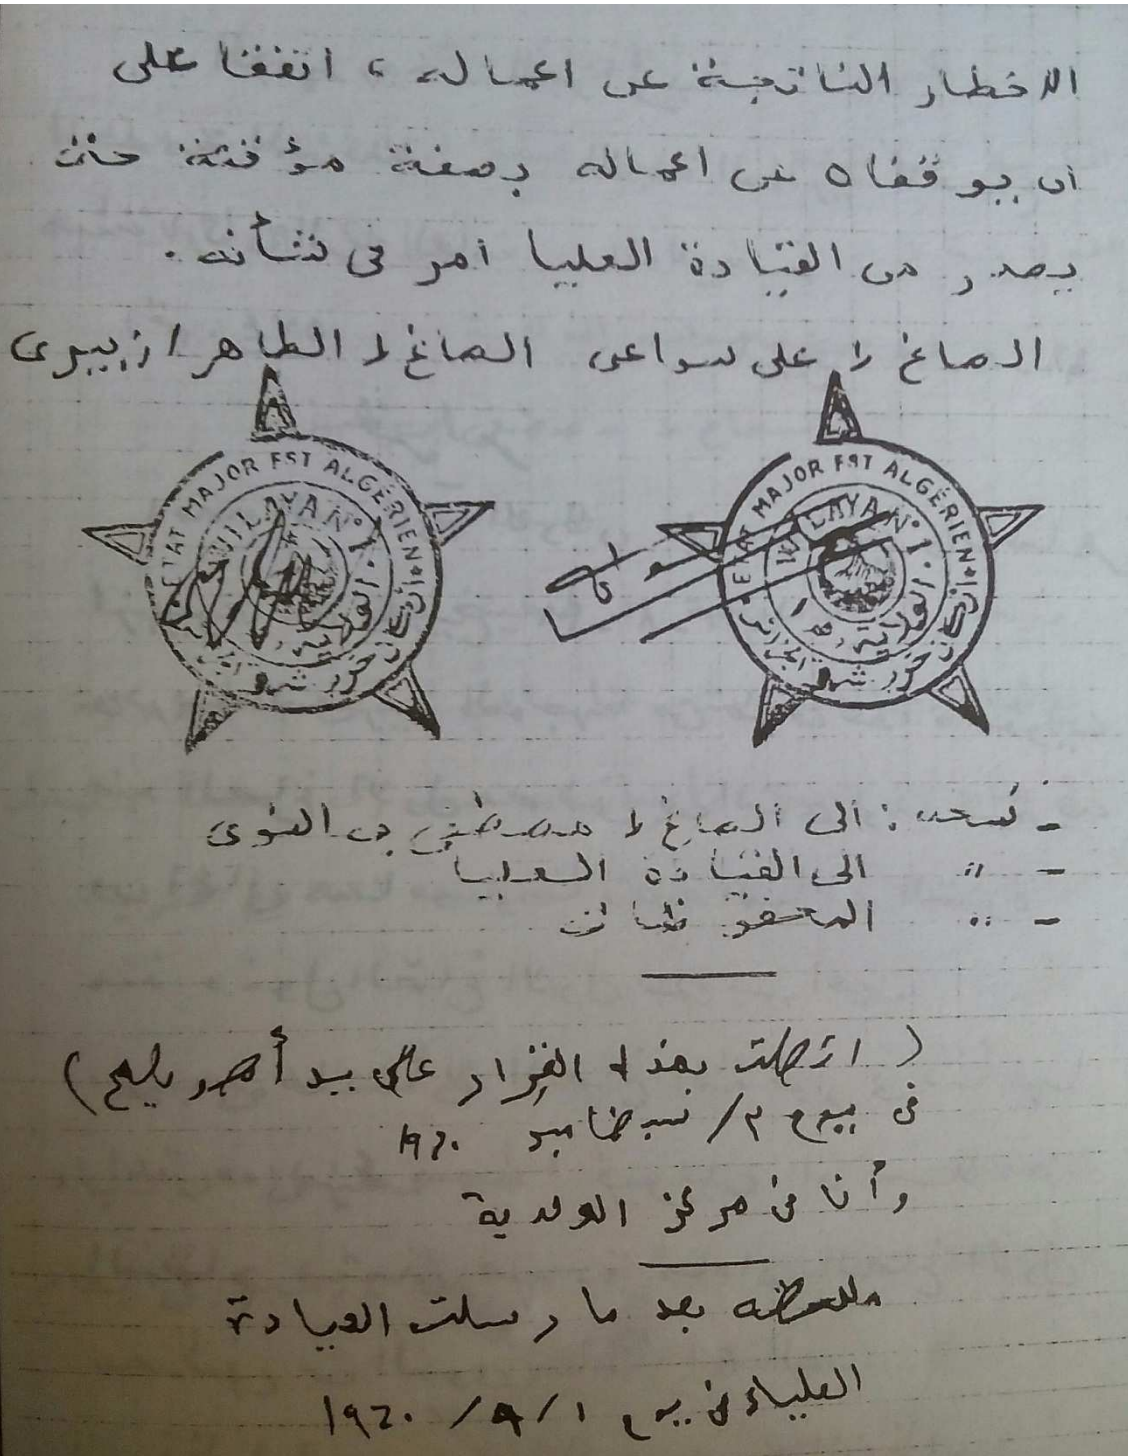 الاخطار الناتجة عن اعماله ، اتفقنا على
ان يوقفاه عن اعماله بصفة مؤقتة حتى
يصدر من القيادة العليا امر في شأنه .
الصاغ لا على سواعى الصاغ لا الطاهر / زبيرى
ETAT MAJOR EST ALGÉRIEN
WILAYA N° 1
الولاية
أركان حرب شرق الجزائر
ETAT MAJOR EST ALGÉRIEN
WILAYA N° 1
الولاية رقم ١
أركان حرب شرق الجزائر
- نسخه : الى الصاغ لا مصطفى بن النوى
- " الى القيادة العليا
- " المحقق
( اتصلت بهذا القرار على يد أحمد)
في يوم ٣/ سبطامبر ١٩٦٠
وأنا في مركز الولاية
ملاحظه بعد ما رسلت القيادة
العلياء في يوم ١ / ٩ / ١٩٦٠